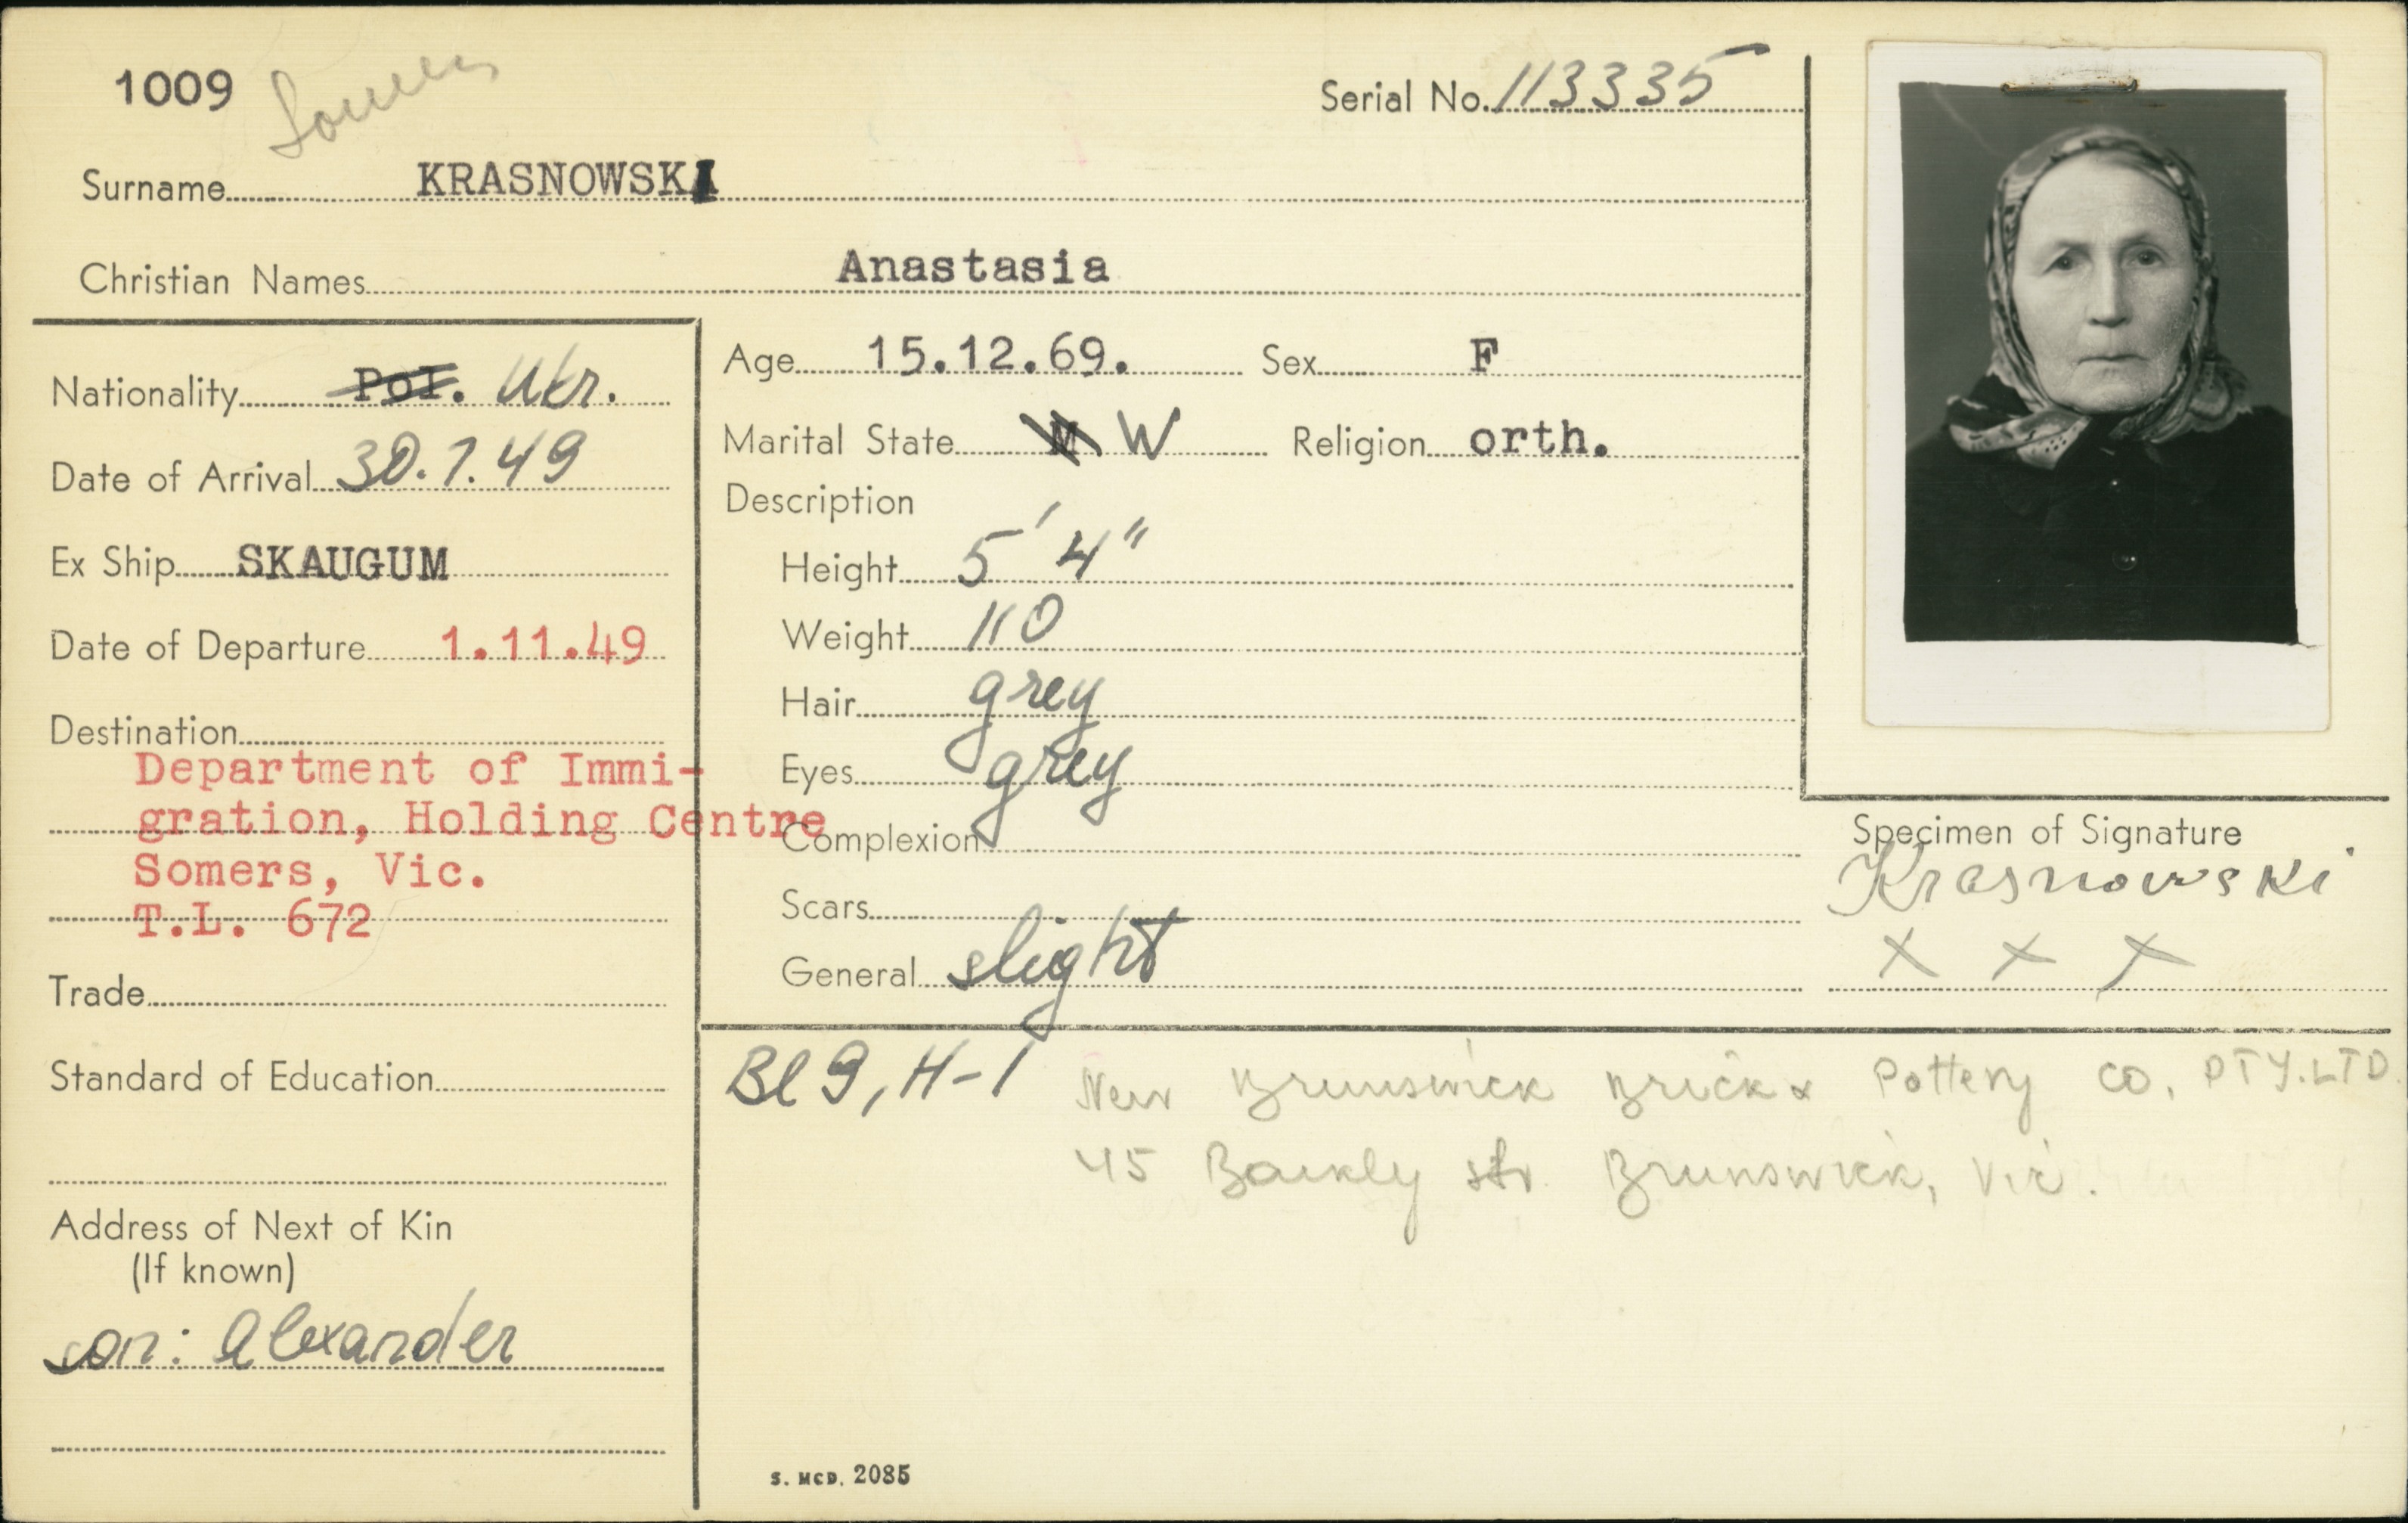 1009 Somers
Serial No. 113335
Surname KRASNOWSKI
Christian Names Anastasia
Nationality Pol. Ukr.
Date of Arrival 30.7.49
Ex Ship SKAUGUM
Date of Departure 1.11.49
Destination
Department of Immi-
gration, Holding Centre
Somers, Vic.
T.L. 672
Trade
Standard of Education
Address of Next of Kin
(If known)
son: Alexander
Age 15.12.69. Sex F
Marital State M W Religion orth.
Description
Height 5' 4"
Weight 110
Hair grey
Eyes grey
Complexion
Scars
General slight
Specimen of Signature
Krasnowski
x x x
Bl 9, H-1 New Brunswick Brick & Pottery CO. PTY. LTD.
45 Barkly str. Brunswick, Vic.
S. McD. 2085